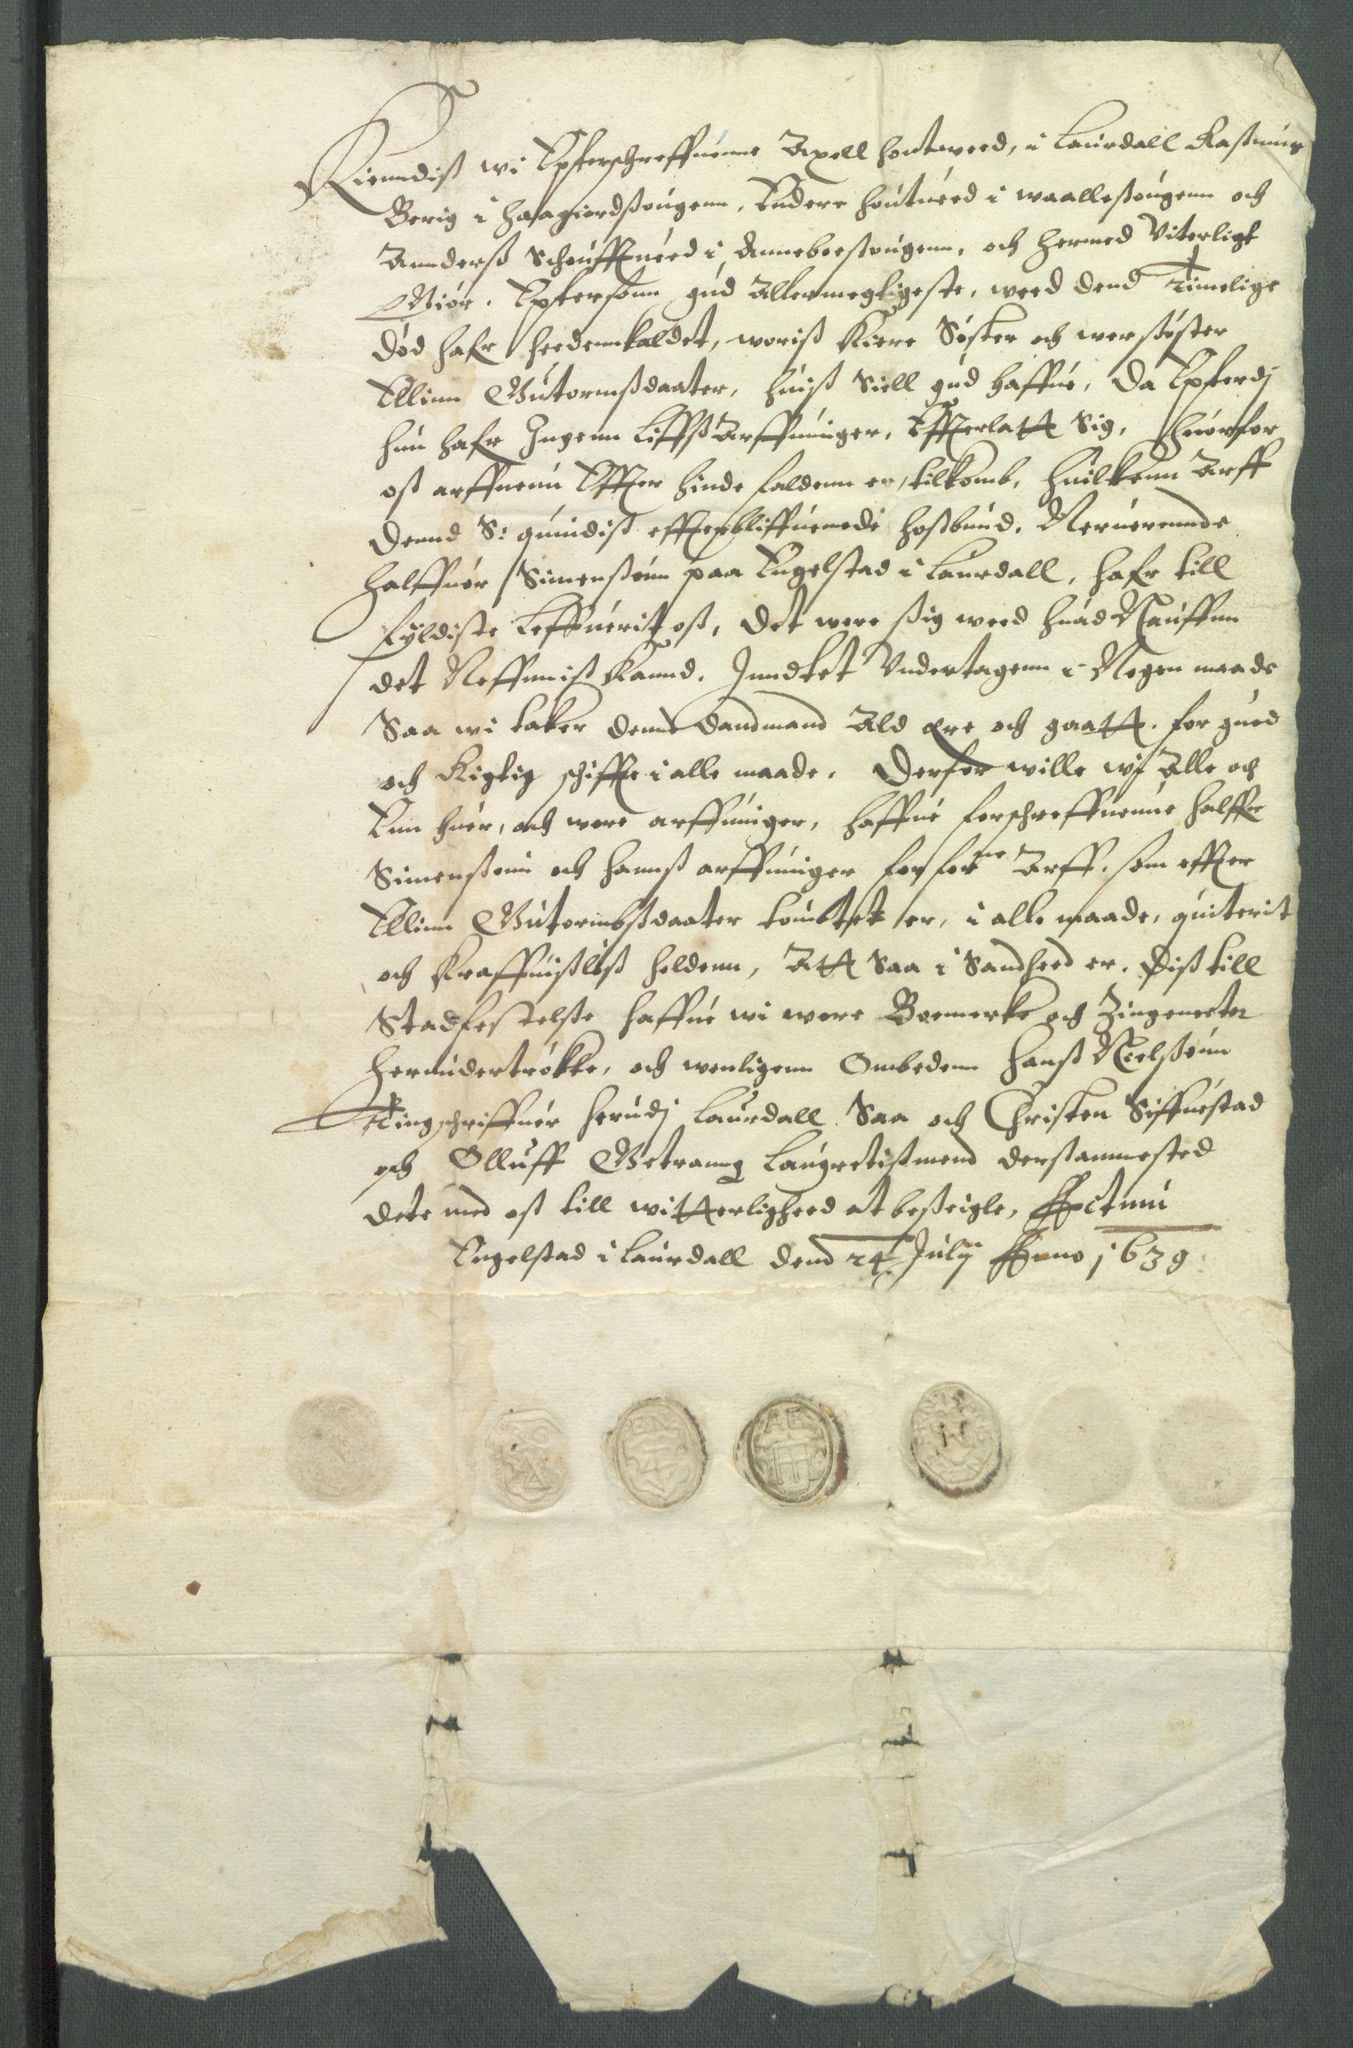 Kiendis wi Epterschreffuenne Axell hontweed, i Laurdall Rasmus
Berig i haagierdsougenn, Endere houtueed i waallesougenn och
Annderss Schouffueed i Anneboesougenn, och hermed Viterligt
Giør. Eptersom gud Allermegtigeste, weed dend Timelige
død hafr heedennkaldet, woriss kiere Søster och wersøster
Ellinn Gutormssdaater, huiss Siell gud haffue, da Epterdj
hun hafr Ingenn Liffss Arffuinger, Effterlatt Sig, huorfor
oss arffuenn Effter hinde faldenn er, tilkomb, huilkenn Arff
dennd S: quindiss effterbliffuenede hossbund, Neruerennde
halffuor Simenssønn paa Engelstad i Laurdall, hafr till
fyldiste Leffuerit oss, det were sig weed huad Nauffnn
det Neffnniss kannd. Inndtet Vndertagenn i Nogen maade
Saa wi taker dennd dandmand Ald ære och gaatt. for gued
och Rigtig schiffte i alle maade. Derfor wille wj Alle och
Enn huer, och wore arffuinger, haffue forschreffuenne halffr
Simenssønn och hanss arffuinger for forne Arff, som effter
Ellinn Gutormbssdaater Lembtet er, i alle maade, quiterit
och kraffuissløss holdenn, Att Saa i Sandheed er. Diss till
Stadfestelsse haffue wi wore Boemerke och Zingeneeter
herundertrøkke, och wenligenn Ombedenn Hanss Nielssønn
Tingschriffuer herudj Laurdall Saa och Christen Siffuestad
och Olluff Getrang Laugretissmend dersammested
dete med oss till witterligheed at besseigle, Actum
Engelstad i Laurdall dend 24. Julij Anno 1639.